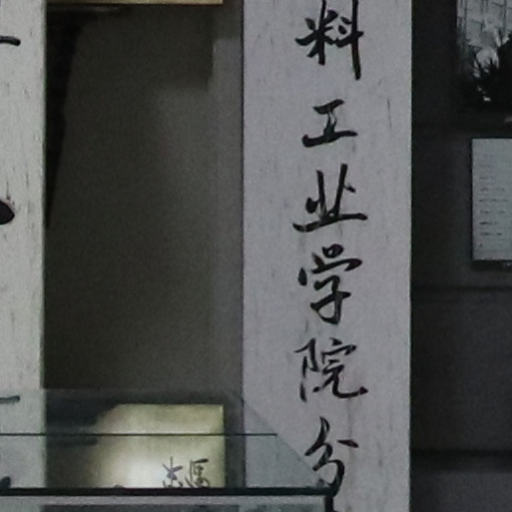 料工业学院分